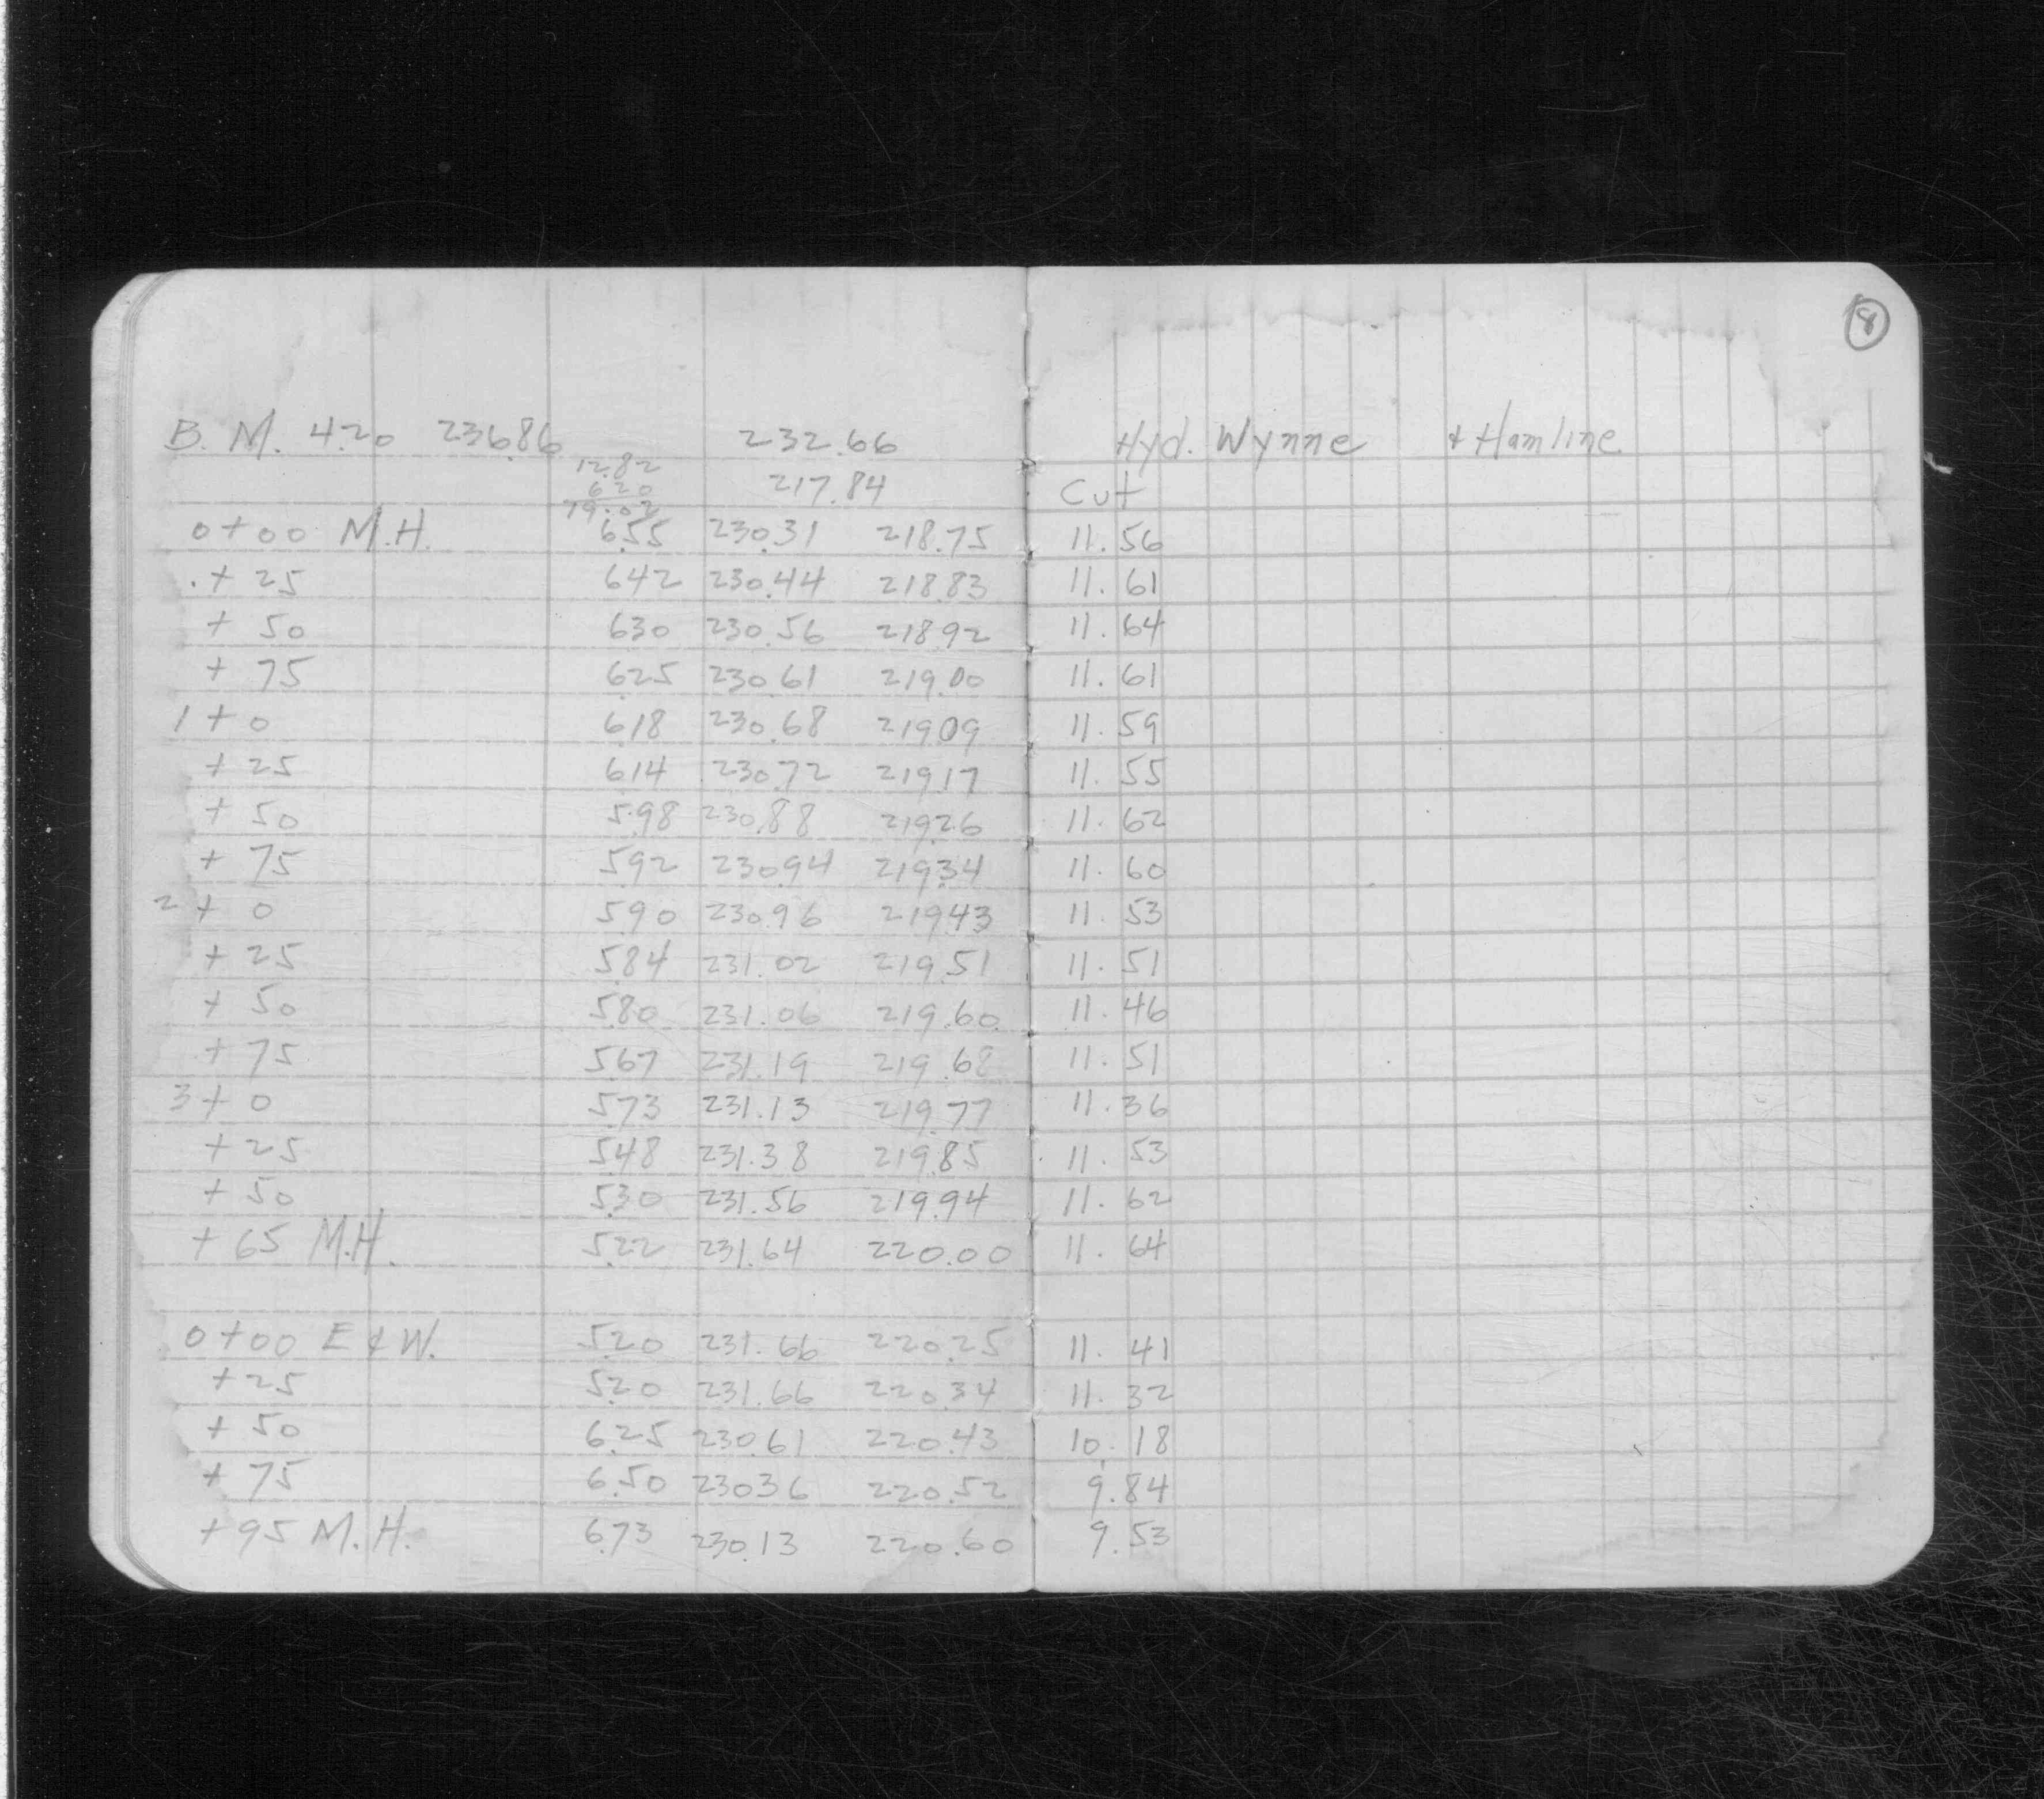 8
B. M. 4.20 236.86 232.66 Hyd. Wynne & Hamline
12.82
6.20 217.84 Cut
19.02
0+00 M.H. 6.55 230.31 218.75 11.56
+ 25 642 230.44 218.83 11.61
+ 50 630 230.56 218.92 11.64
+ 75 625 230.61 219.00 11.61
1+0 618 230.68 219.09 11.59
+ 25 614 230.72 219.17 11.55
+ 50 5.98 230.88 219.26 11.62
+ 75 592 230.94 219.34 11.60
2+ 0 590 230.96 219.43 11.53
+ 25 584 231.02 219.51 11.51
+ 50 580 231.06 219.60 11.46
+ 75 567 231.19 219.68 11.51
3+ 0 573 231.13 219.77 11.36
+ 25 548 231.38 219.85 11.53
+ 50 530 231.56 219.94 11.62
+ 65 M.H. 522 231.64 220.00 11.64
0+00 E & W. 520 231.66 220.25 11.41
+ 25 520 231.66 220.34 11.32
+ 50 6.25 230.61 220.43 10.18
+ 75 6.50 230.36 220.52 9.84
+ 95 M.H. 6.73 230.13 220.60 9.53